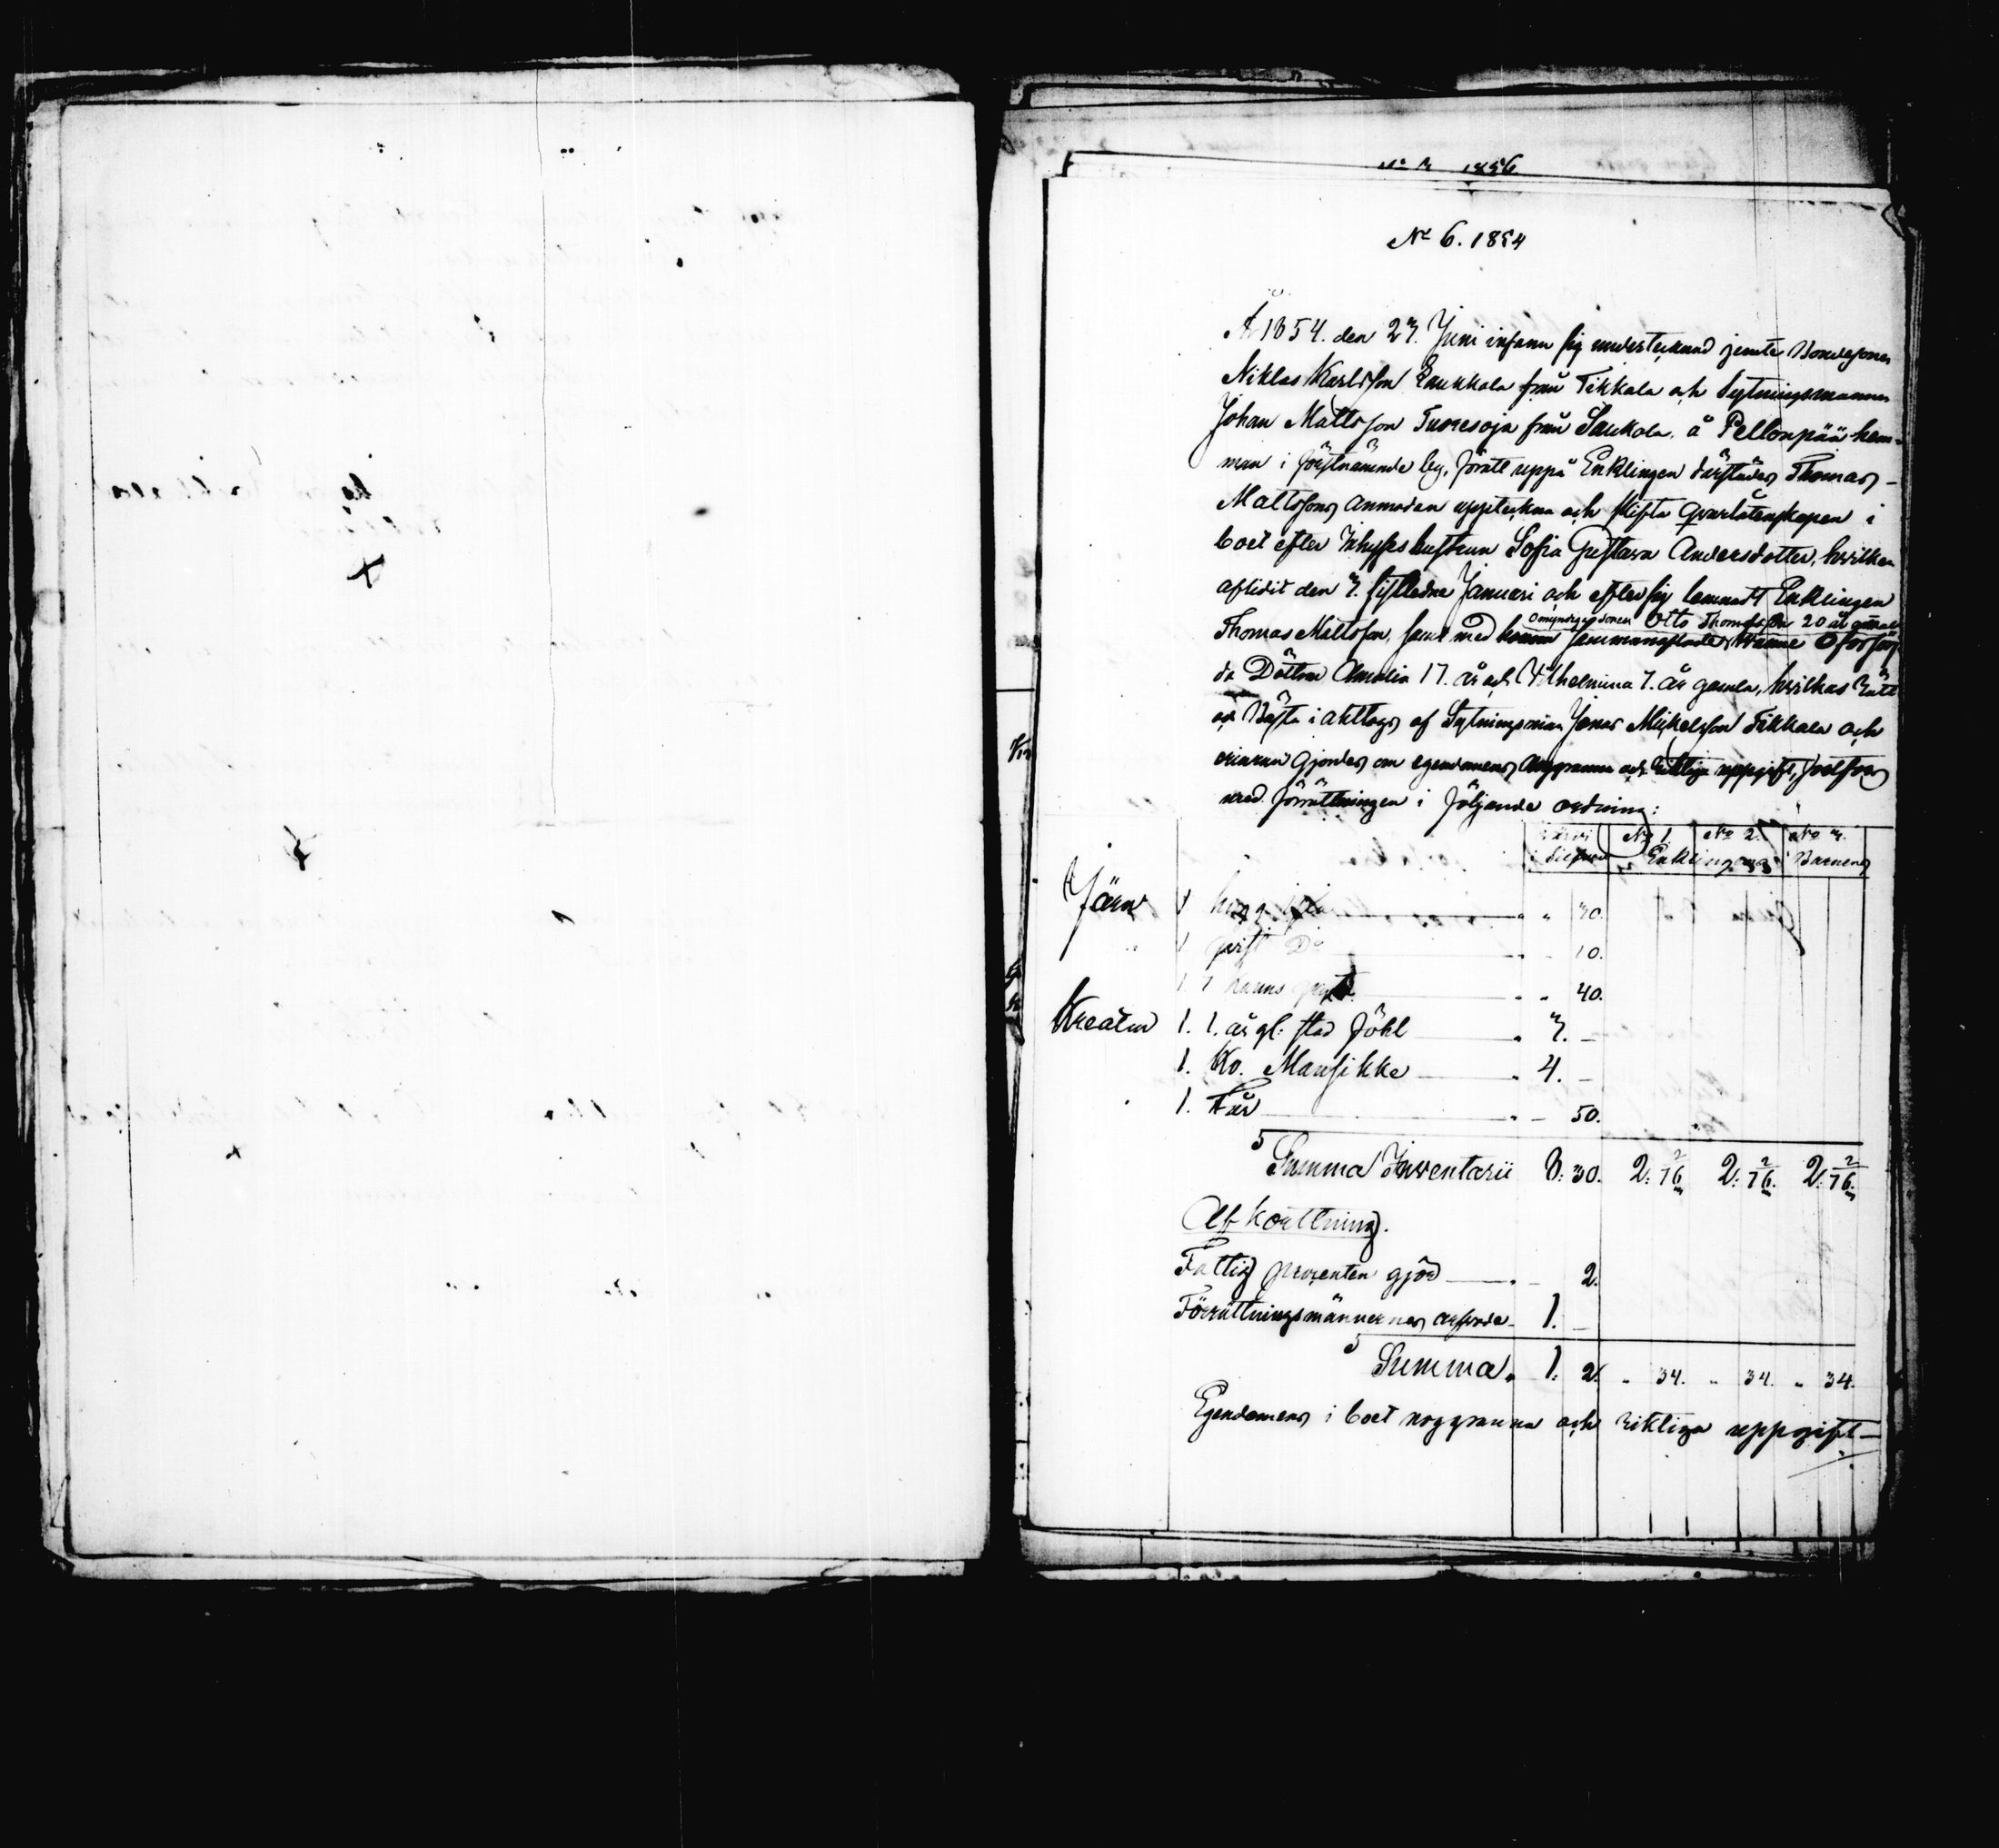 No 6. 1854
År 1854. den 23. Juni infann sig undertecknad jemte Bondesonen
Niklas Karlsson Laukkala från Tikkala och Sytningsmannen
Johan Mattsson Tuoresoja från Saukola, å Pellonpää hem-
man i förstnämnde by, för att uppå Enklingen därstädes Thomas
Mattssons anmodan uppteckna och skifta qvarlåtenskapen i
boet efter Inhyses hustrun Sofia Gustava Andersdotter, hvilken
aflidit den 3. sistledne Januari och efter sig lemnadt Enklingen
omyndige sonen Otto Thomasson 20 år gammal
Thomas Mattsson, samt med henne sammanaflade oförsörj
da Döttrar Amalia 17. år och Vilhelmina 7. år gamla, hvilkas rätt
och Bästa i akttogs af Sytningsman Jonas Mickelsson Tikkala och
erinran gjordes om egendomens noggranna och riktiga uppgift, hvarefter
med förrättningen i följande ordning:
No 1. No 2. No 3.
i Silfver Enklingens Barnens
Järn 1 hugg " " 30.
1 " - 10.
1 " " 40.
Kreatur 1. 1. år gl: stod föhl " 3. -
1. Ko. Mansikke " 4. -
1. Får " - 50.
Summa Inventarii 8: 30. 2: 76 2/3 2: 76 2/3 2: 76 2/3
Afkortning.
Fattig procenten gjör " - 2.
Förrättningsmännernes arfvode - 1. -
Summa " 1: 2. " 34. " 34. " 34.
Egendomens i boet noggranna och riktiga uppgift